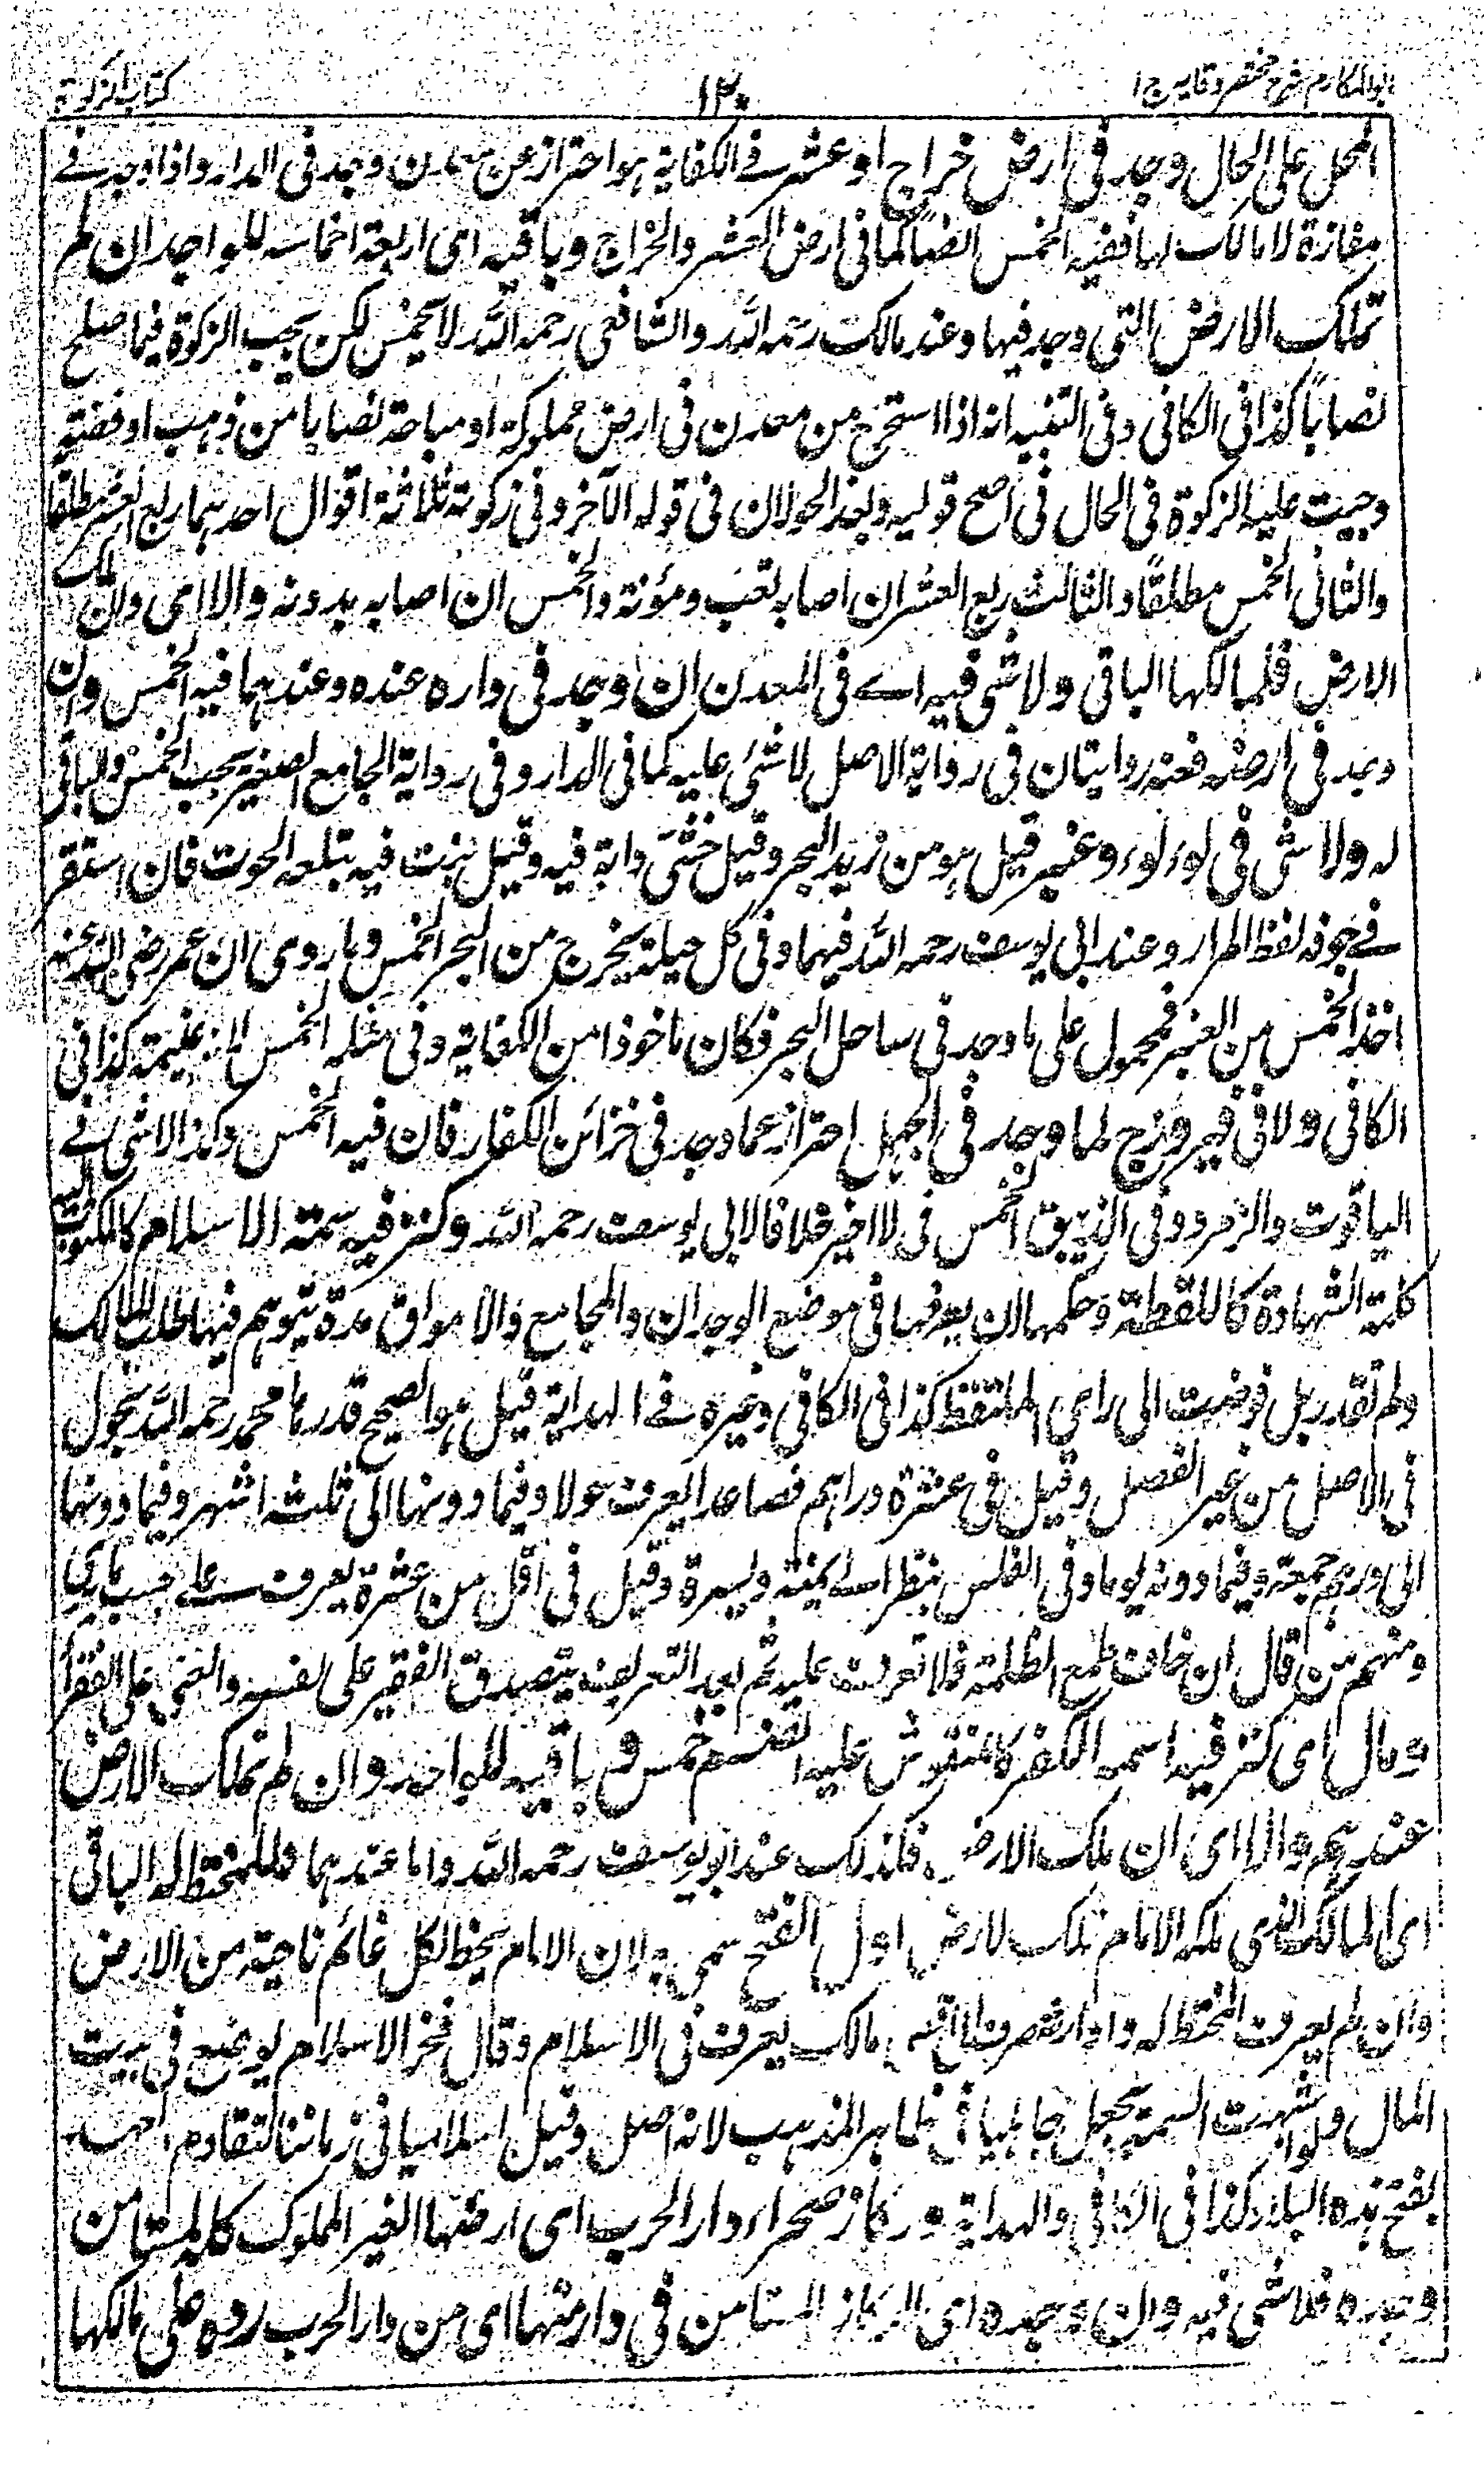 ابو المکارم شرح مختصر وقایه ج ا
١٣٠
کتاب الزکوة
المحل علی الحال وجد فی ارض خراج او عشر فے الکفایة هو احتراز عن معدن وجد فی الدار واذا وجد فے
مفازة لا مالک لها ففیه الخمس ایضاً کما فی ارض العشر والخراج وباقیه ای اربعة اخماسه للواجد ان لم
تملک الارض التی وجد فیها وعند مالک رحمه اللّه والشافعی رحمه اللّه لا یخمس لکن یجب الزکوة فیما صلح
نصاباً کذا فی الکافی وفی التنبیه انه اذا استخرج من معدن فی ارض مملوکة او مباحة نصابا من ذهب او فضة
وجبت علیه الزکوة فی الحال فی اصح قولیه وبعد الحولان فی قوله الآخر وفی زکوته ثلاثة اقوال احدهما ربع العشر مطلقا
والثانی الخمس مطلقاً والثالث ربع العشر ان اصابه تعب ومؤنة والخمس ان اصابه بدونه والا ای وان ملک
الارض فلمالکها الباقی ولا شی فیه اے فی المعدن ان وجد فی داره عنده وعندهما فیه الخمس وان
وجد فی ارضه فعنه روایتان فی روایة الاصل لا شیٔ علیه کما فی الدار وفی روایة الجامع الصغیر یجب الخمس والباقی
له ولا شی فی لوء لوء وعنبر قیل هو من زبد البحر وقیل خثی دابة فیه وقیل نبت فیه یبتلعه الحوت فان استقر
فے جوفه لفظ المرار وعند ابی یوسف رحمه اللّه فیهما وفی کل حیلة یخرج من البحر الخمس وما روی ان عمر رضی اللّه عنه
اخذ الخمس من العنبر فمحمول علی ما وجد فی ساحل البحر فکان ماخوذا من الکفایة وفی مثله الخمس لانه غنیمة کذا فی
الکافی ولا فی فیروزج لما وجد فی الجبل احتراز عما وجد فی خزائن الکفار فان فیه الخمس وکذا لا شی فے
الیاقوت والزمرد وفی الزیبق الخمس فی الاخیر خلافا لابی یوسف رحمه اللّه وکنز فیه سمة الاسلام کالمکتوب الیه
کلمة الشهادة کاللقطة وحکمها ان یعرفها فی موضع الوجدان والمجامع والاسواق مدة یتوهم فیها طلب المالک
ولم تقدر بل فوضت الی رای الملتقط کذا فی الکافی وغیره فے الهدایة قیل هو الصحیح قدرها محمد رحمه اللّه بحول
فی الاصل من غیر الفصل وقیل فی عشرة دراهم فصاعدا یعرف حولا وفیما دونها الی ثلث اشهر وفیما دونها
الی درهم جمعة وفیما دونه یوما وفی الفلس ینظر اے یمنته ویسرة وقیل فی اقل من عشرة یعرف علے حسب مایری
ومنهم من قال ان خاف طمع الظلمة فلا تعریف علیه ثم بعد التعریف یتصدق الفقیر علی نفسه والغنی علی الفقراء
و مال ای کنز فیه اسمه الکفر کالمنقوش علیه الصنم خمس و باقیه للواجد وان لم تملک الارض
عندهم والا ای ان ملک الارض فکذلک عند ابو یوسف رحمه اللّه واما عندهما فللمختط له الباقی
ای المالک الذی ملکه الامام تلک الارض اول الفتح سمی به لان الامام یخط لکل غانم ناحیة من الارض
وان لم یعرف المختط له و مالک یعرف فی الاسلام وقال فخر الاسلام یوضع فی بیت
المال ولو اشتبهت السمة یجعل جاهلیا فی ظاهر المذهب لانه اصل وقیل اسلامیا فی زماننا لتقادم العهد
بفتح هذه البلاد کذا فی الکافی والهدایة و رکاز صحراء دار الحرب ای ارضها الغیر المملوک کله لمستامن
وجده فلا شی فیه وان وجده ای الرکاز المستامن فی دار منها ای من دار الحرب رده علی مالکها